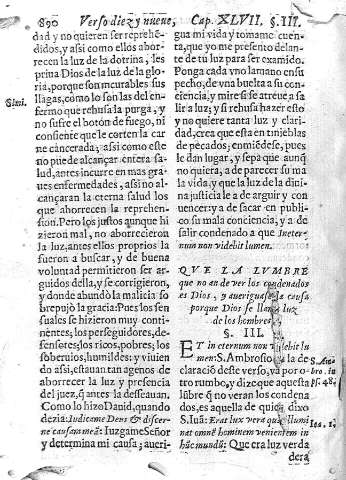 890 Verso diez y nueue, Cap. XLVII. §. III.
dad y no quieren ser reprehe-
didos, y assi como ellos abor-
recen la luz de la dotrina, les
priua Dios de la luz de la glo-
ria, porque son incurables sus
llagas, como lo son las del en-
fermo que rehusa la purga, y
no sufre el botõ de fuego, ni
consiente que le corten la car
ne cãncerada; assi como este
no puede alcançar entera sa-
lud, antes incurre en mas gra-
ues enfermedades, assi no al-
cançaran la eterna salud los
que aborrecen la reprehen-
sion. Pero los justos aunque hi
zieron mal, no aborrecieron
la luz, antes ellos proprios la
fueron a buscar, y de buena
voluntad permitieron ser ar-
guidos della, y se corrigieron,
y donde abundò la malicia so
brepujò la gracia: Pues los sen
suales se hizieron muy conti-
nentes; los perseguidores, de-
fensores; los ricos, pobres; los
soberuios, humildes: y viuien
do assi, estauan tan agenos de
aborrecer la luz y presencia
del juez, q̃ antes la desseauan.
Como lo hizo Dauid, quando
dezia: Iudicame Deus & discer-
ne causam meã: Iuzgame Señor
y determina mi causa; aueri-
Simi.
gua mi vida y tomame cuen-
ta, que yo me presento delan-
te de tu luz para ser examido.
Ponga cada vno la mano en su
pecho, de vna buelta a su con-
ciencia, y mire si se atreue a sa-
lir a luz; y si rehusa hazer esto
y no quiere tanta luz y clari-
dad, crea que esta en tinieblas
de pecados; enmiēdese, pues
le dan lugar, y sepa que aunq̃
no quiera, a de parecer su ma
la vida, y que la luz de la diui-
na justicia le a de arguir y con
uencer y a de sacar en publi-
co su mala conciencia, y a de
salir condenado a que In eter-
num non videbit lumen.
QVE LA LVMBRE
que no an de ver los condenados
es Dios, y aueriguase la causa
porque Dios se llama luz
de los hombres.
§. III.
ET in eternum non videbit lu
men: S. Ambrosio a la de
claraciõ deste verso, ya por o-
tro rumbo, y dize que aquesta
lũbre q̃ no veran los conden-
dos, es aquella de quien dixo
S. Iuã: Erat lux vera quæ illumi
nat omnē hominem venientem in
hūc mundū: Que era luz verda
dera
S. Am-
bro. in
Ps. 48.
Ioa. 1.